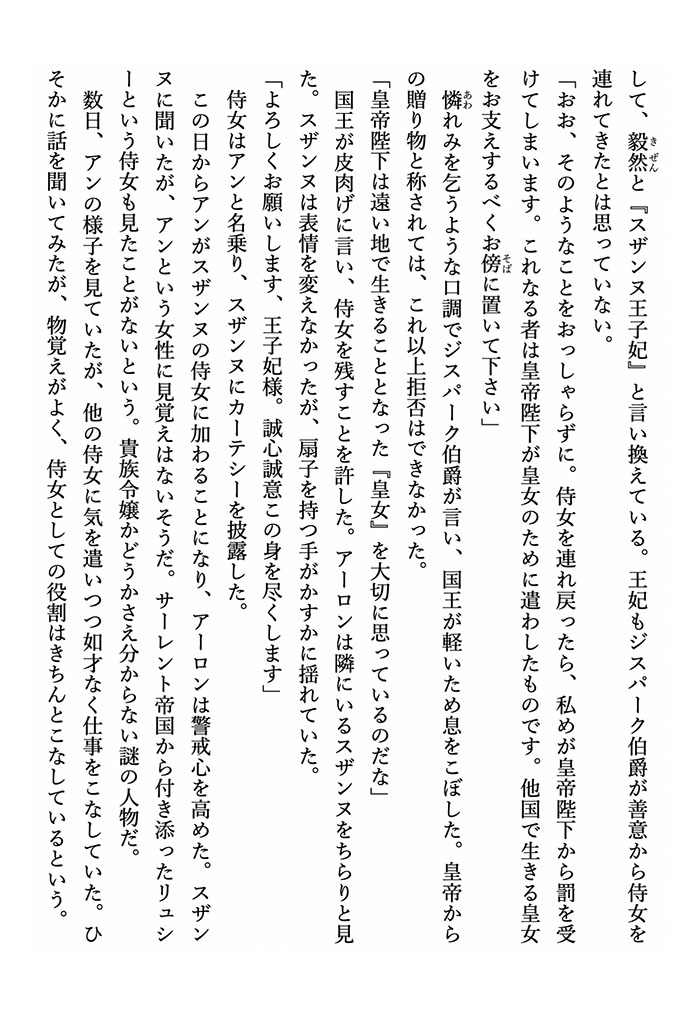 して、毅然と『スザンヌ王子妃』と言い換えている。王妃もジスパーク伯爵が善意から侍女を
連れてきたとは思っていない。
「おお、そのようなことをおっしゃらずに。侍女を連れ戻ったら、私めが皇帝陛下から罰を受
けてしまいます。これなる者は皇帝陛下が皇女のために遣わしたものです。他国で生きる皇女
をお支えするべくお傍に置いて下さい」
憐れみを乞うような口調でジスパーク伯爵が言い、国王が軽いため息をこぼした。皇帝から
の贈り物と称されては、これ以上拒否はできなかった。
「皇帝陛下は遠い地で生きることとなった『皇女』を大切に思っているのだな」
国王が皮肉げに言い、侍女を残すことを許した。アーロンは隣にいるスザンヌをちらりと見
た。スザンヌは表情を変えなかったが、扇子を持つ手がかすかに揺れていた。
「よろしくお願いします、王子妃様。誠心誠意この身を尽くします」
侍女はアンと名乗り、スザンヌにカーテシーを披露した。
この日からアンがスザンヌの侍女に加わることになり、アーロンは警戒心を高めた。スザン
ヌに聞いたが、アンという女性に見覚えはないそうだ。サーレント帝国から付き添ったリュシ
ーという侍女も見たことがないという。貴族令嬢かどうかさえ分からない謎の人物だ。
数日、アンの様子を見ていたが、他の侍女に気を遣いつつ如才なく仕事をこなしていた。ひ
そかに話を聞いてみたが、物覚えがよく、侍女としての役割はきちんとこなしているという。